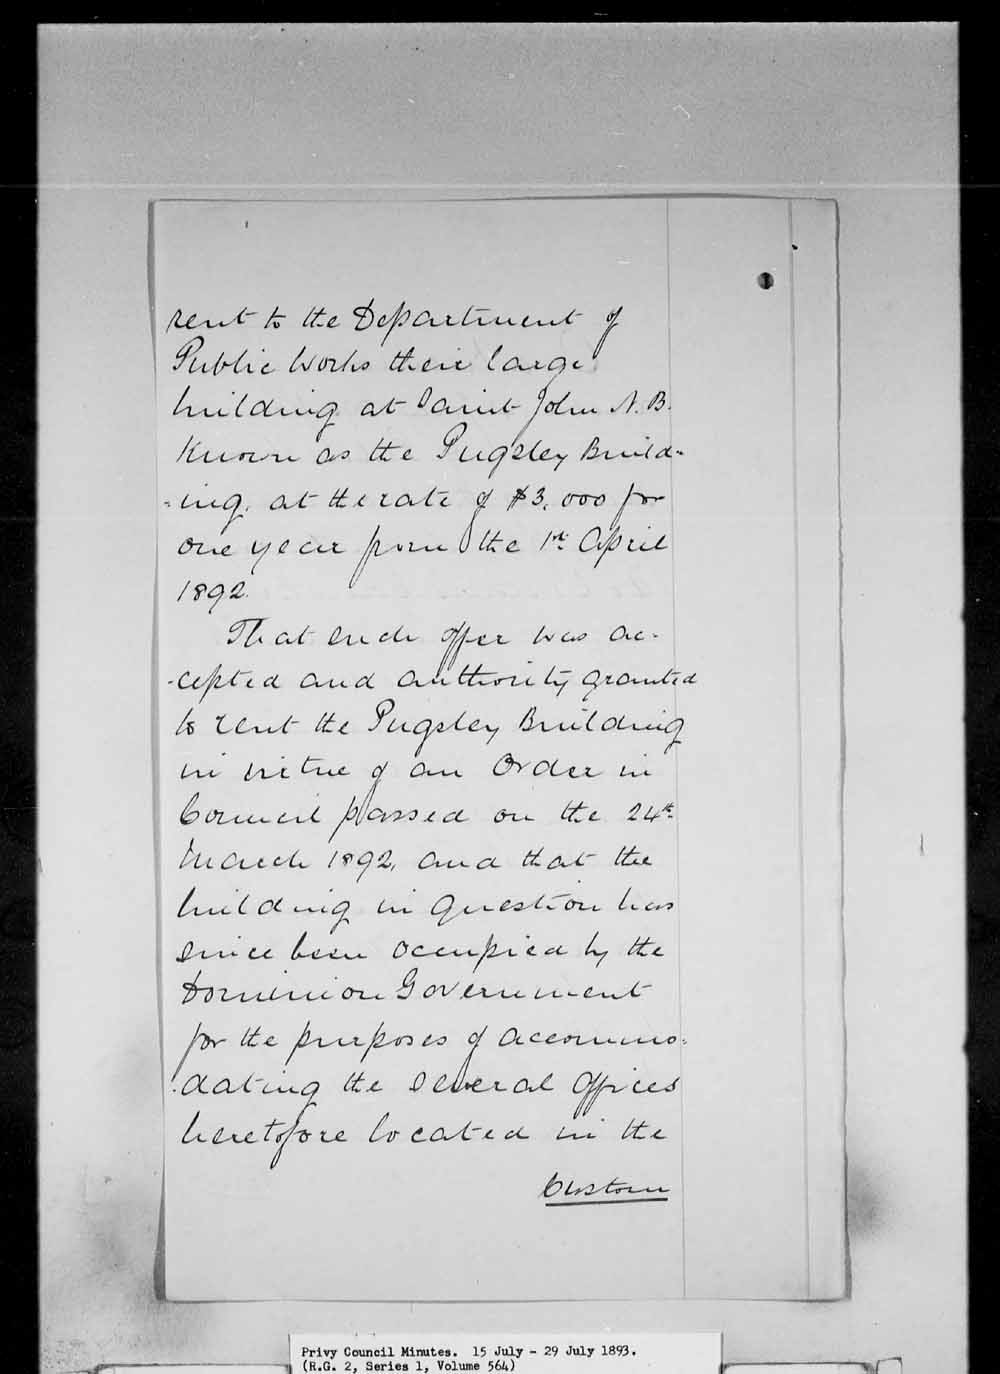 rent to the Department of
Public Works their large
building at Saint John N.B.
Known as the Pugsley Build-
-ing, at the rate of $3,000 for
one year from the 1st April
1892.
That such offer was ac-
-cepted and authority granted
to rent the Pugsley Building
in virtue of an Order in
Council passed on the 24th
March 1892, and that the
building in question has
since been occupied by the
Dominion Government
for the purposes of accommo-
-dating the several Offices
heretofore located in the
Custom
Privy Council Minutes. 15 July - 29 July 1893.
(R.G. 2, Series 1, Volume 564)